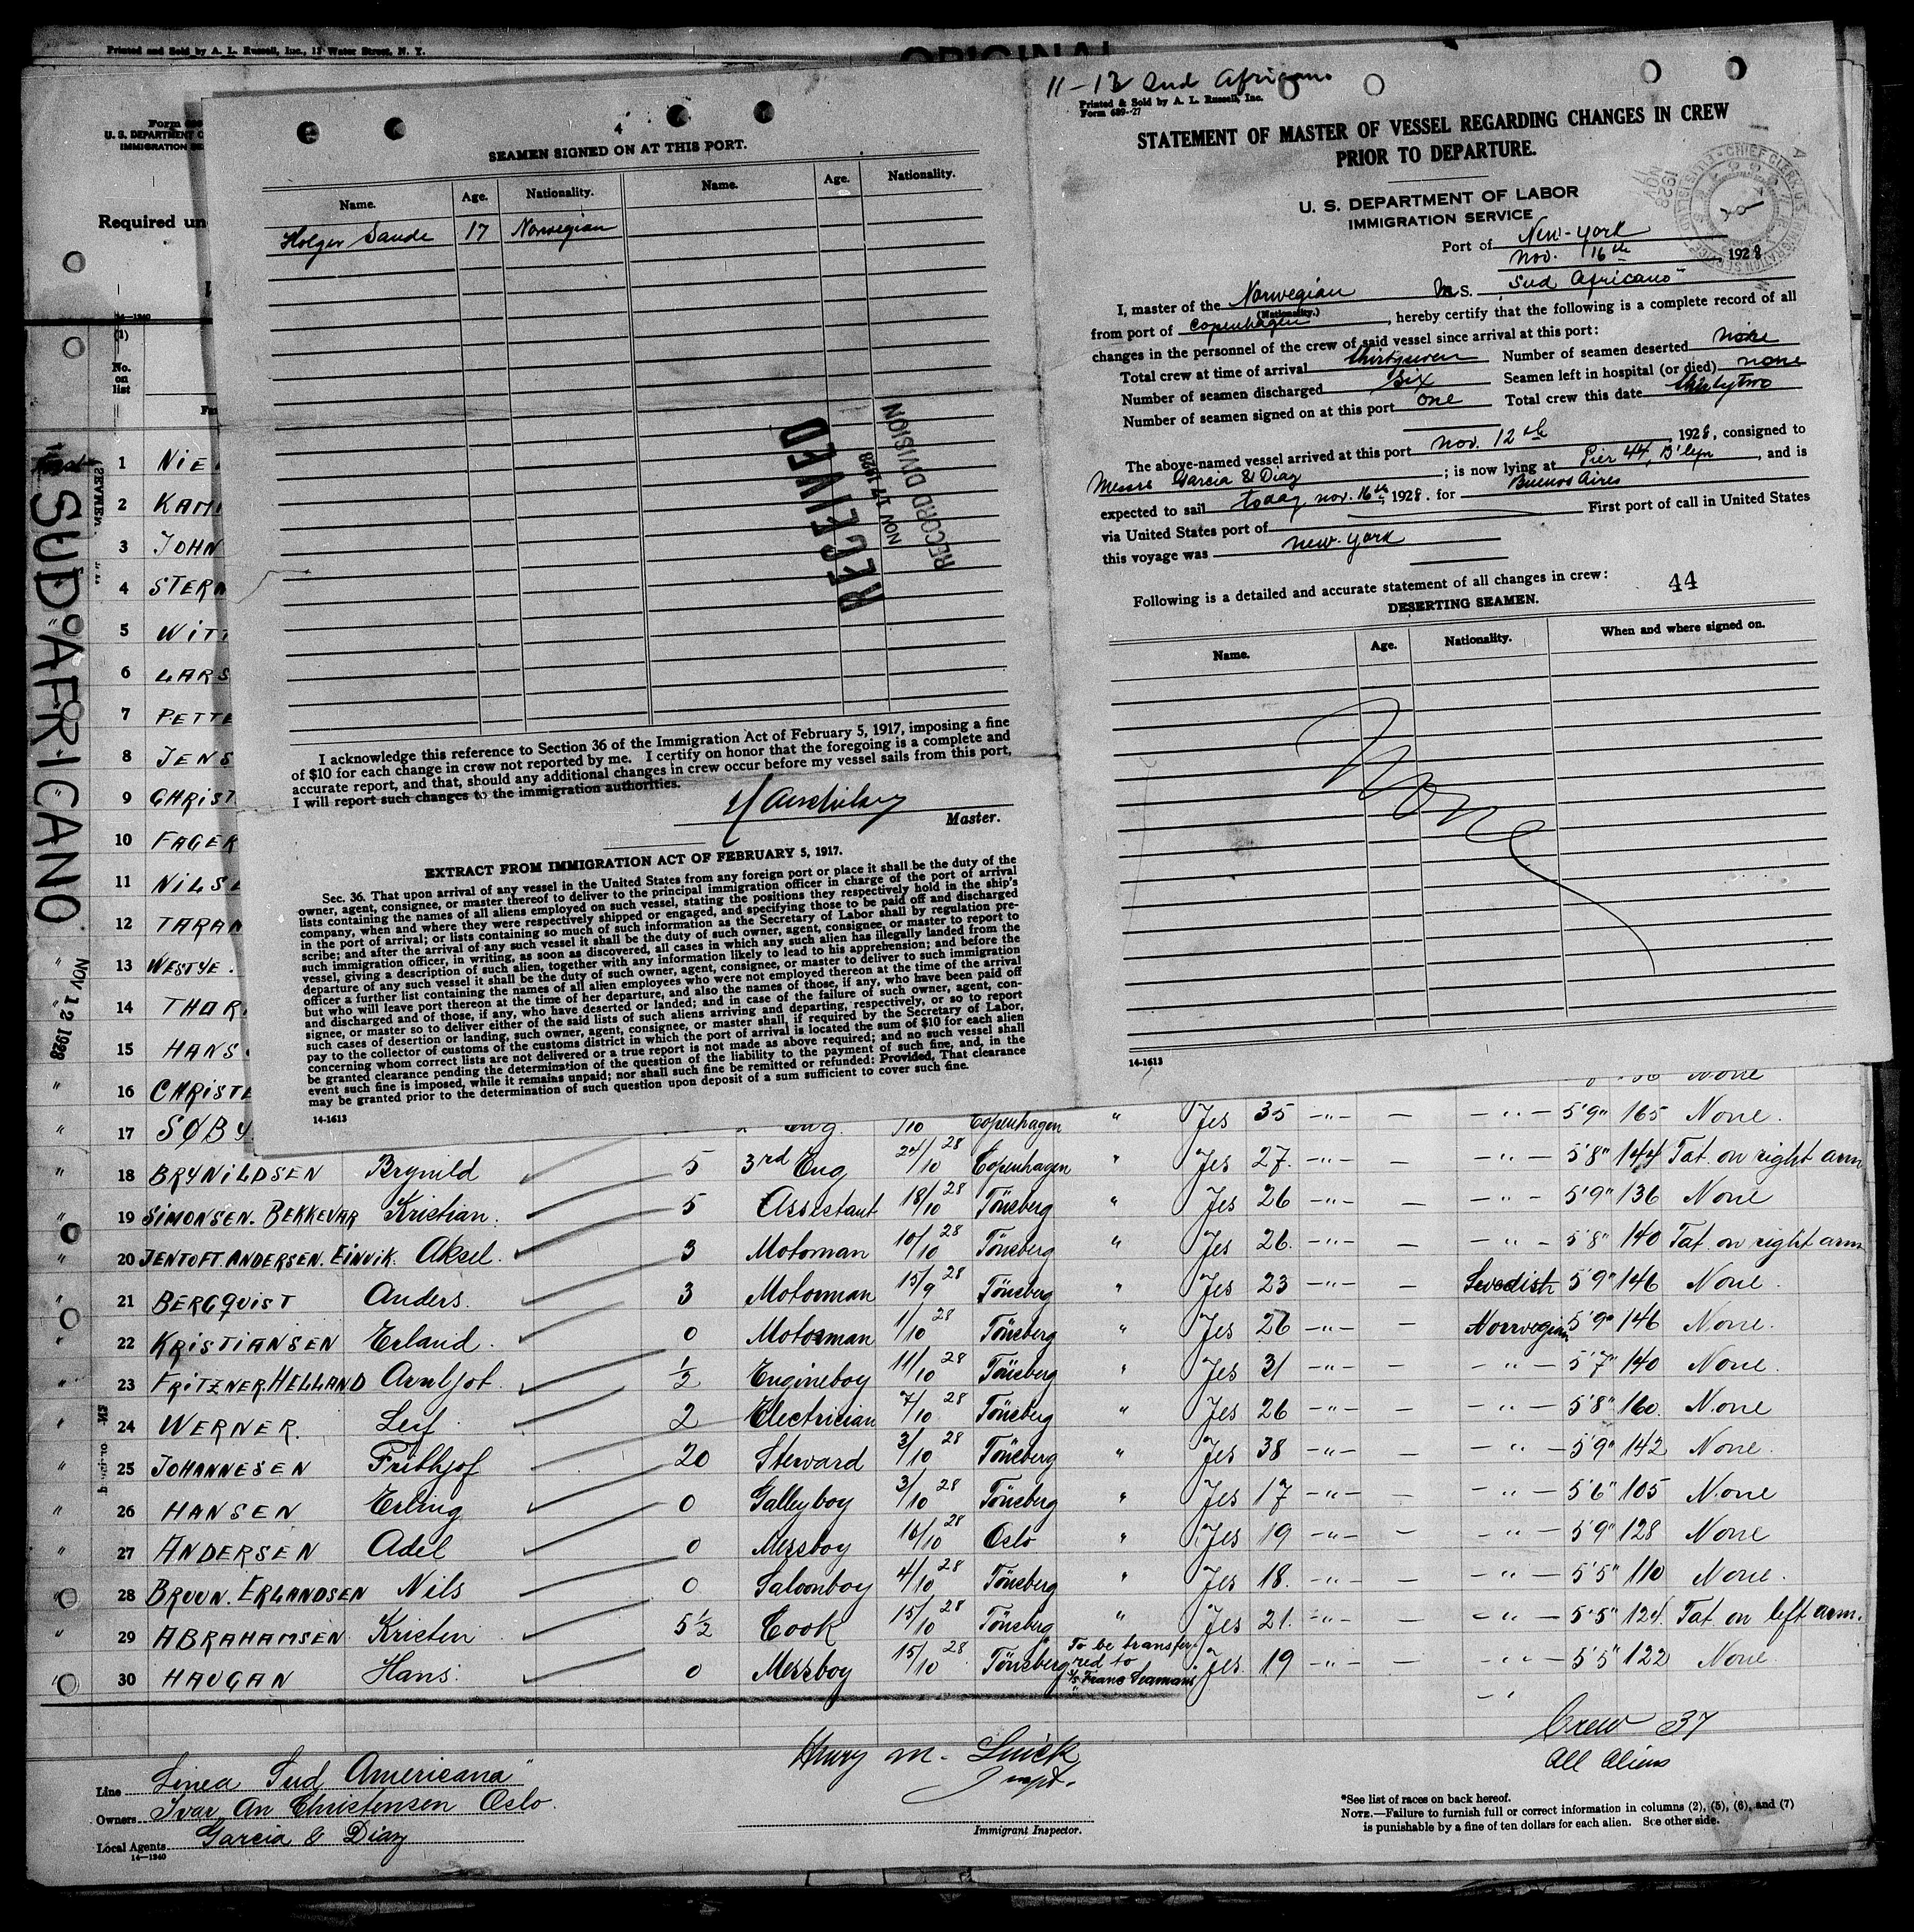 Printed and Sold by A. L. Russell, Inc., 13 Water Street, N. Y.
ORIGINAL
U. S. DEPARTMENT
IMMIGRATION
Required un
14-1240
(1)
No.
on
list
SUD AFRICANO
NOV 12 1928
1 NIE
2 KAM
3 JOHN
4 STERN
5 WITT
6 LARS
7 PETTE
8 JENS
9 CHRIST
10 FAGER
11 NILSE
12 TARAN
13 WESTYE.
14 THOR
15 HANS
16 CHRISTE
4
SEAMEN SIGNED ON AT THIS PORT.
Name. Age. Nationality. Name. Age. Nationality.
Holger Sande 17 Norwegian
RECEIVED
NOV 17 1928
RECORD DIVISION
I acknowledge this reference to Section 36 of the Immigration Act of February 5, 1917, imposing a fine
of $10 for each change in crew not reported by me. I certify on honor that the foregoing is a complete and
accurate report, and that, should any additional changes in crew occur before my vessel sails from this port,
I will report such changes to the immigration authorities.
Master.
EXTRACT FROM IMMIGRATION ACT OF FEBRUARY 5, 1917.
Sec. 36. That upon arrival of any vessel in the United States from any foreign port or place it shall be the duty of the
owner, agent, consignee, or master thereof to deliver to the principal immigration officer in charge of the port of arrival
lists containing the names of all aliens employed on such vessel, stating the positions they respectively hold in the ship's
company, when and where they were respectively shipped or engaged, and specifying those to be paid off and discharged
in the port of arrival; or lists containing so much of such information as the Secretary of Labor shall by regulation pre-
scribe; and after the arrival of any such vessel it shall be the duty of such owner, agent, consignee, or master to report to
such immigration officer, in writing, as soon as discovered, all cases in which any such alien has illegally landed from the
vessel, giving a description of such alien, together with any information likely to lead to his apprehension; and before the
departure of any such vessel it shall be the duty of such owner, agent, consignee, or master to deliver to such immigration
officer a further list containing the names of all alien employees who were not employed thereon at the time of the arrival
but who will leave port thereon at the time of her departure, and also the names of those, if any, who have been paid off
and discharged and of those, if any, who have deserted or landed; and in case of the failure of such owner, agent, con-
signee, or master so to deliver either of the said lists of such aliens arriving and departing, respectively, or so to report
such cases of desertion or landing, such owner, agent, consignee, or master shall, if required by the Secretary of Labor,
pay to the collector of customs of the customs district in which the port of arrival is located the sum of $10 for each alien
concerning whom correct lists are not delivered or a true report is not made as above required; and no such vessel shall
be granted clearance pending the determination of the question of the liability to the payment of such fine, and, in the
event such fine is imposed, while it remains unpaid; nor shall such fine be remitted or refunded: Provided, That clearance
may be granted prior to the determination of such question upon deposit of a sum sufficient to cover such fine.
14-1613
11-12 Sud Africano
Printed & Sold by A. L. Russell, Inc.
Form 689-27
STATEMENT OF MASTER OF VESSEL REGARDING CHANGES IN CREW
PRIOR TO DEPARTURE.
U. S. DEPARTMENT OF LABOR
IMMIGRATION SERVICE
Port of New-York
Nov. 16th, 1928
I, master of the Norwegian M S. Sud Africano
(Nationality.)
from port of Copenhagen, hereby certify that the following is a complete record of all
changes in the personnel of the crew of said vessel since arrival at this port:
Total crew at time of arrival thirtyseven Number of seamen deserted none
Number of seamen discharged six Seamen left in hospital (or died) none
Number of seamen signed on at this port one Total crew this date thirtytwo
The above-named vessel arrived at this port Nov. 12th, 1928, consigned to
Messrs Garcia & Diaz; is now lying at Pier 44, B'lyn, and is
expected to sail today Nov. 16th, 1928. for Buenos Aires
via United States port of First port of call in United States
this voyage was New-York
Following is a detailed and accurate statement of all changes in crew: 44
DESERTING SEAMEN.
Name. Age. Nationality. When and where signed on.
None
14-1613
None
17 SØBY Eng. /10 Copenhagen " Yes 35 -"- - -"- 5'9" 165 None.
18 BRYNILDSEN Brynild 5 3rd Eng 24/10 28 Copenhagen " Yes 27. -"- - -"- 5'8" 144 Tat. on right arm
19 SIMONSEN. BEKKEVAR Kristian. 5 Assistant 18/10 28 Tönsberg " Yes 26 -"- - -"- 5'9" 136 None
20 JENTOFT. ANDERSEN. EINVIK. Aksel. 3 Motorman 10/10 28 Tönsberg " Yes 26. -"- - -"- 5'8" 140 Tat. on right arm
21 BERGQVIST Anders. 3 Motorman 15/9 28 Tönsberg " Yes 23 -"- - Swedish 5'9" 146 None.
22 KRISTIANSEN Erland. 0 Motorman 1/10 28 Tönsberg " Yes 26 -"- - Norwegian 5'9" 146 None.
23 FRITZNER. HELLAND Arnljot. 1/2 Engineboy 11/10 28 Tönsberg " Yes 31 -"- - -"- 5'7" 140 None.
24 WERNER. Leif 2 Electrician 7/10 28 Tönsberg " Yes 26 -"- - -"- 5'8" 160. None
25 JOHANNESEN Frithjof 20 Steward 3/10 28 Tönsberg " Yes 38 -"- - -"- 5'9" 142 None.
26 HANSEN Erling 0 Galleyboy 3/10 28 Tönsberg " Yes 17 -"- - -"- 5'6" 105 None
27 ANDERSEN Adel 0 Messboy 16/10 28 Oslo " Yes 19 -"- - -"- 5'9" 128 None
28 BRUUN. ERLANDSEN Nils 0 Saloonboy 4/10 28 Tönsberg " Yes 18. -"- - -"- 5'5" 110 None.
29 ABRAHAMSEN Kristen 5 1/2 Cook 15/10 28 Tönsberg " Yes 21. -"- - -"- 5'5" 124. Tat. on left arm.
30 HAUGAN Hans. 0 Messboy 15/10 28 Tönsberg To be transfer-red to Yes. 19 -"- - -"- 5'5" 122 None
Crew 37
All Aliens
Henry M.
Inspt.
Immigrant Inspector.
Line Linea Sud Americana
Owners Ivar An Christensen Oslo.
Local Agents Garcia & Diaz
14-1240
*See list of races on back hereof.
NOTE.—Failure to furnish full or correct information in columns (2), (5), (6), and (7)
is punishable by a fine of ten dollars for each alien. See other side.